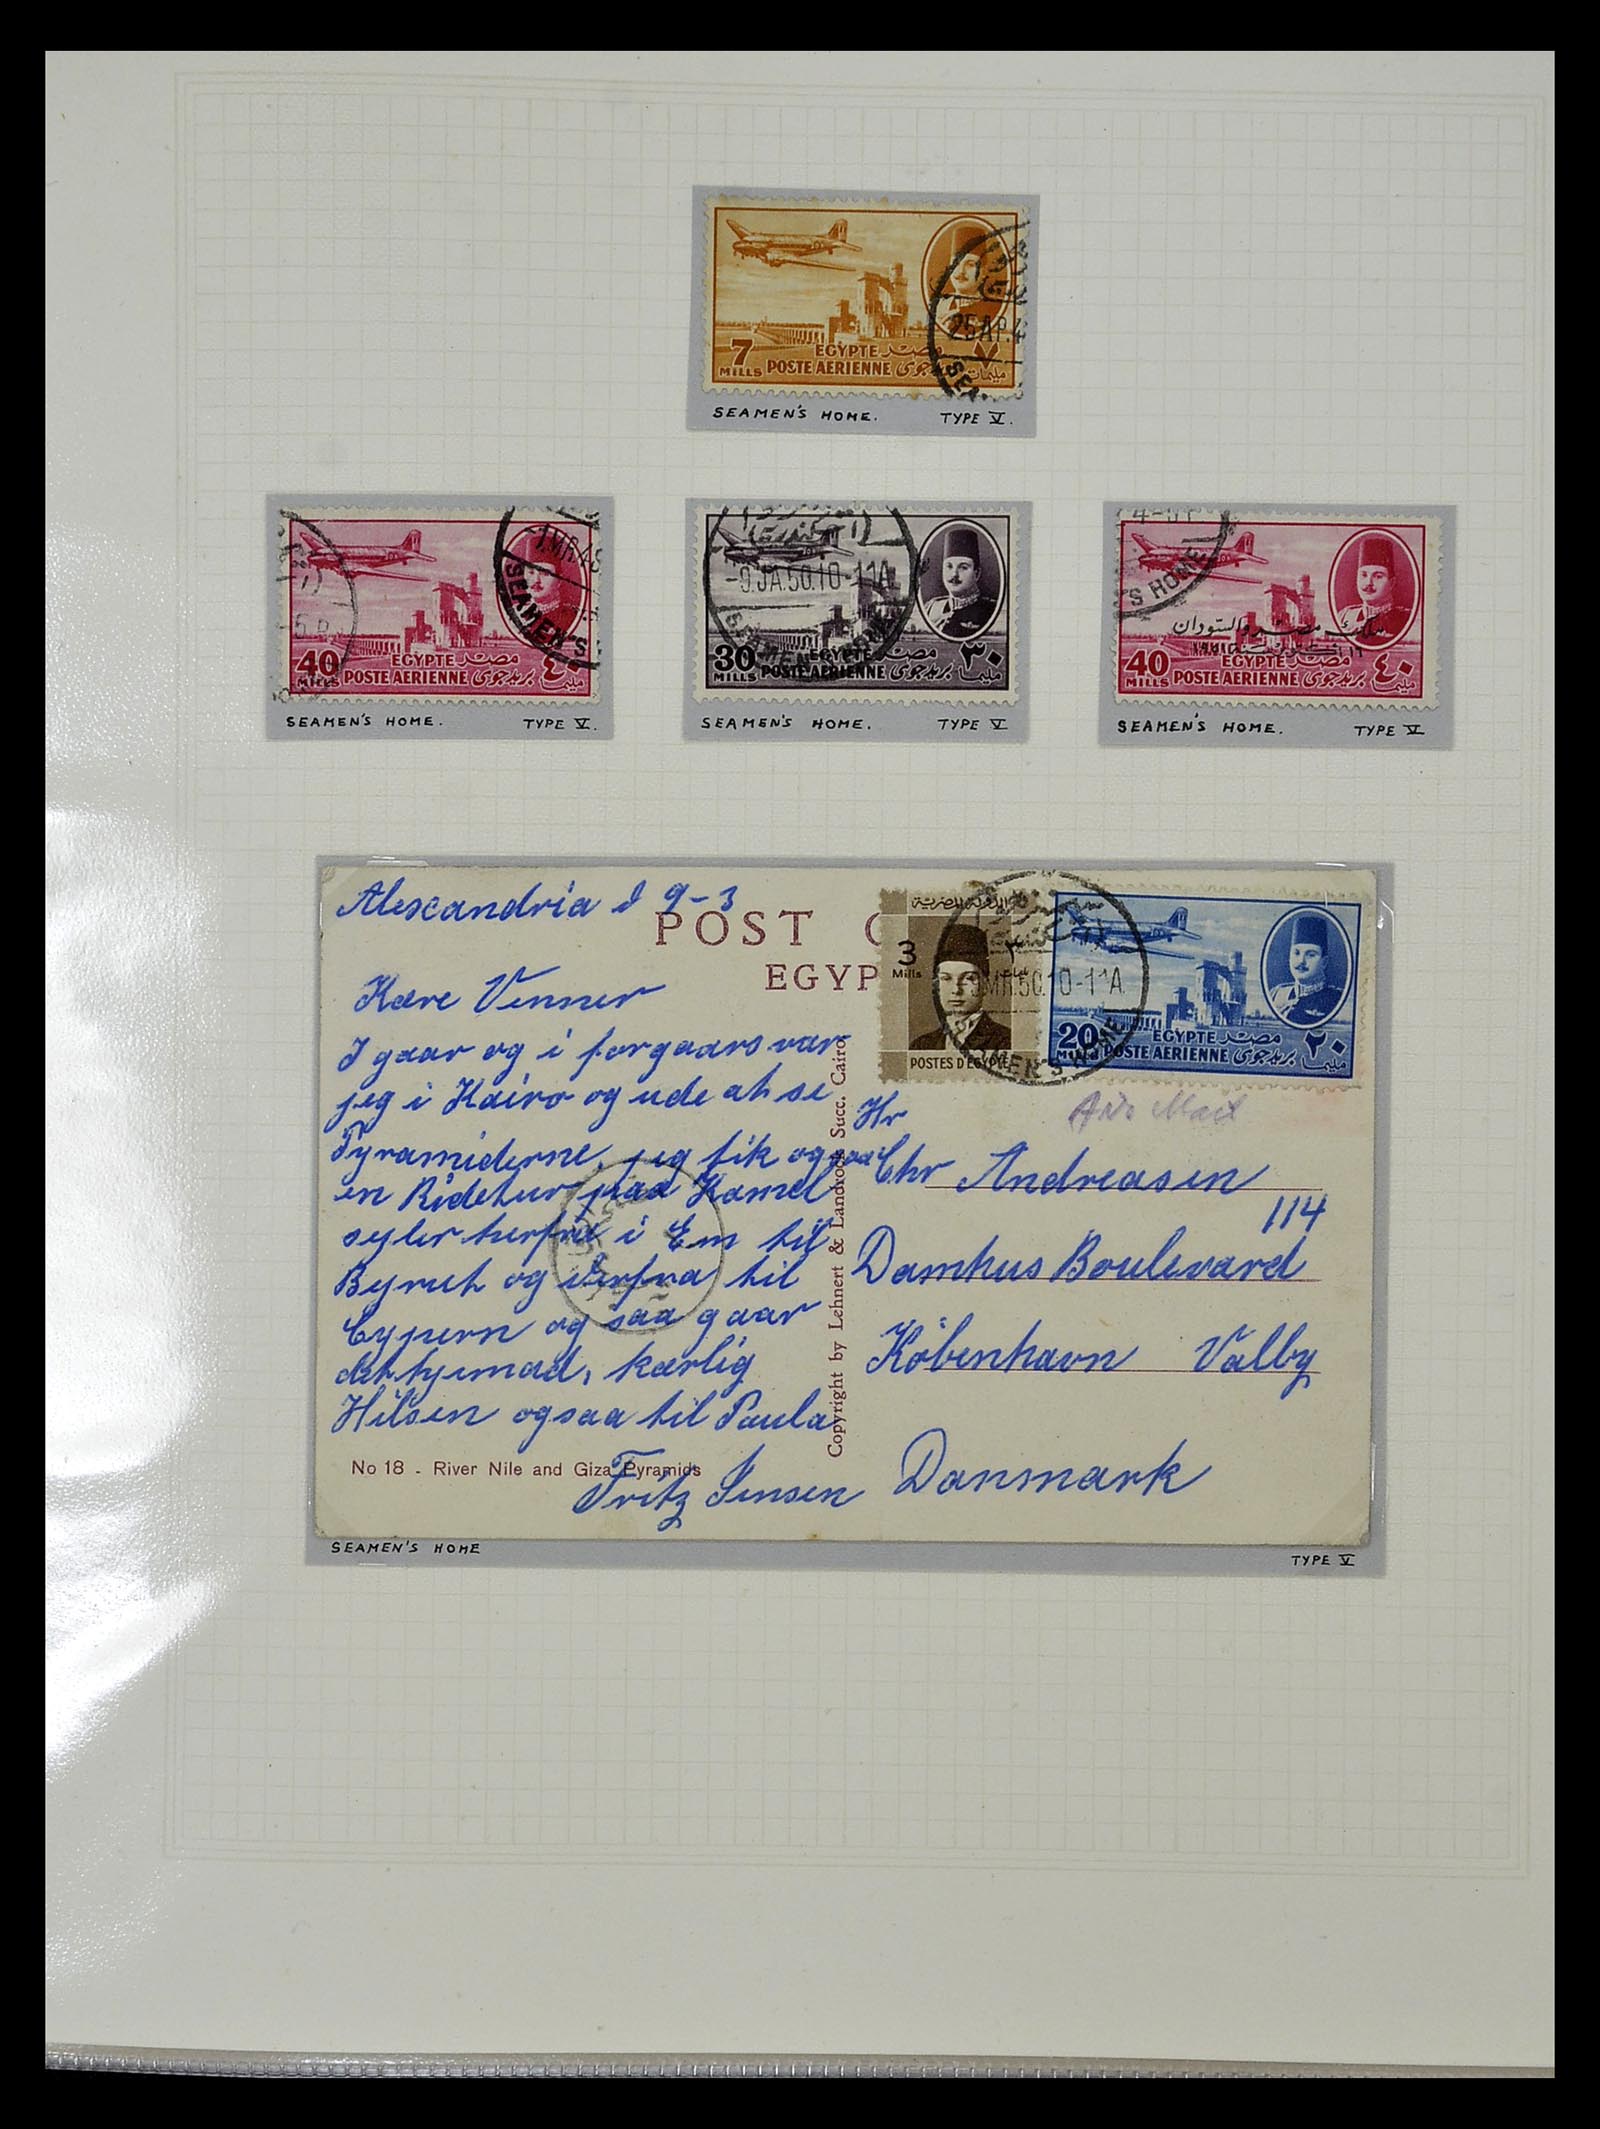 7 MILLS
EGYPTE مصر
POSTE AERIENNE بريد جوى
مليمات ٧
25 AP.4
SEA
SEAMEN'S HOME. TYPE V.
-1 MR
SEAMEN'S
40 MILLS
EGYPTE مصر
POSTE AERIENNE بريد جوى
SEAMEN'S HOME. TYPE V.
-9.JA.50.10-11A
30 MILLS
EGYPTE مصر ٣٠
POSTE AERIENNE بريد جوى
SEAMEN'S HOME. TYPE V
'S HOME
ملك مصر والسودان
40 MILLS
EGYPTE مصر ٤٠
POSTE AERIENNE بريد جوى
SEAMEN'S HOME. TYPE V
Alexandria d 9-3
POST C
EGYP
3 Mills
POSTES D'EGYPTE
9MR.50.10-11A
SEAMEN'S HOME
20 MILLS
EGYPTE مصر ٢٠
POSTE AERIENNE بريد جوى
Air Mail
Kære Venner
I gaar og i forgaars var
jeg i Kairo og ude at se
Pyramiderne, jeg fik ogsaa
en Ridetur paa Kamel
sejler herfra i Em til
Byrut og derfra til
Cypern og saa gaar
det hjemad, kærlig
Hilsen ogsaa til Paula
Fritz Jensen
No 18 - River Nile and Giza Pyramids
Copyright by Lehnert & Landrock Succ. Cairo.
Hr
Chr Andreasen
114
Damhus Boulevard
København Valby
Danmark
SEAMEN'S HOME TYPE V